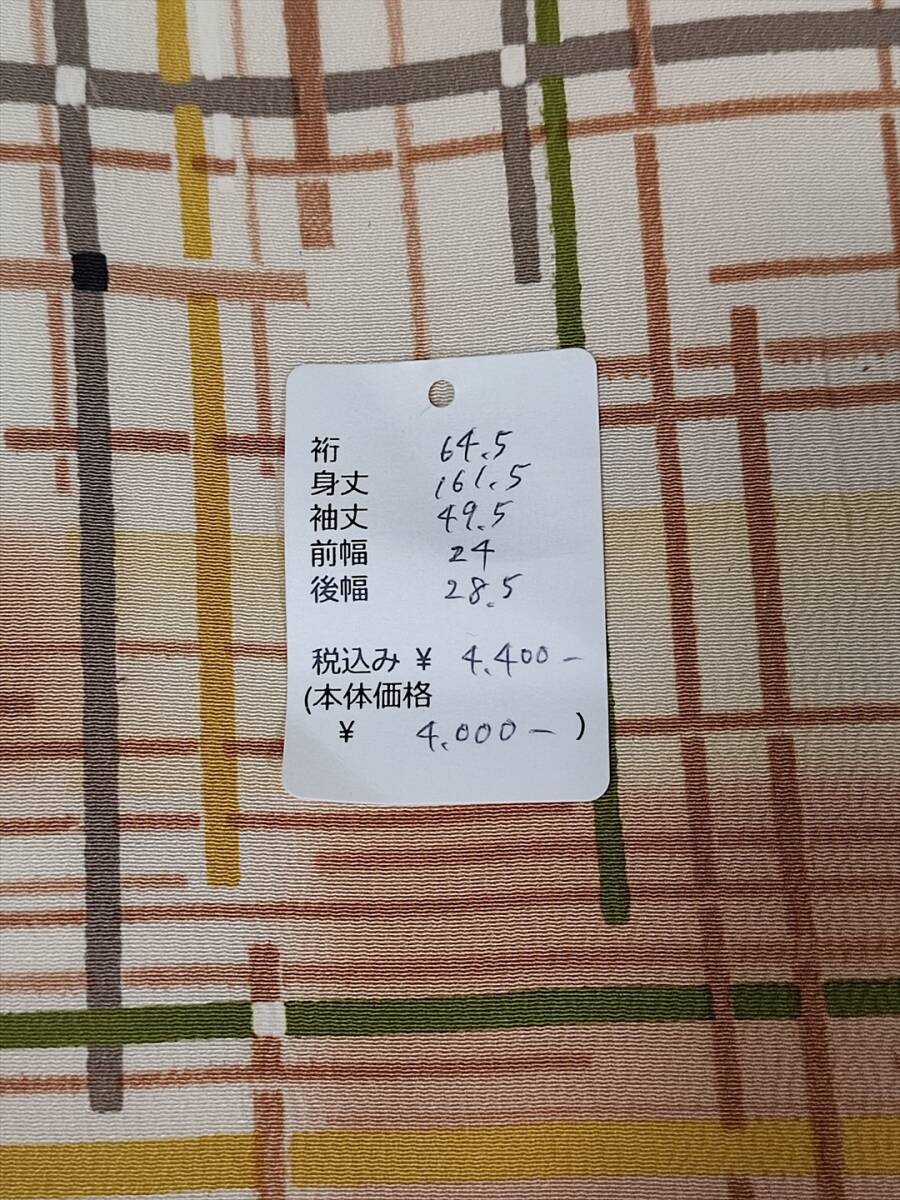 裄 64.5
身丈 161.5
袖丈 49.5
前幅 24
後幅 28.5
税込み ¥ 4.400-
(本体価格
¥ 4.000- )